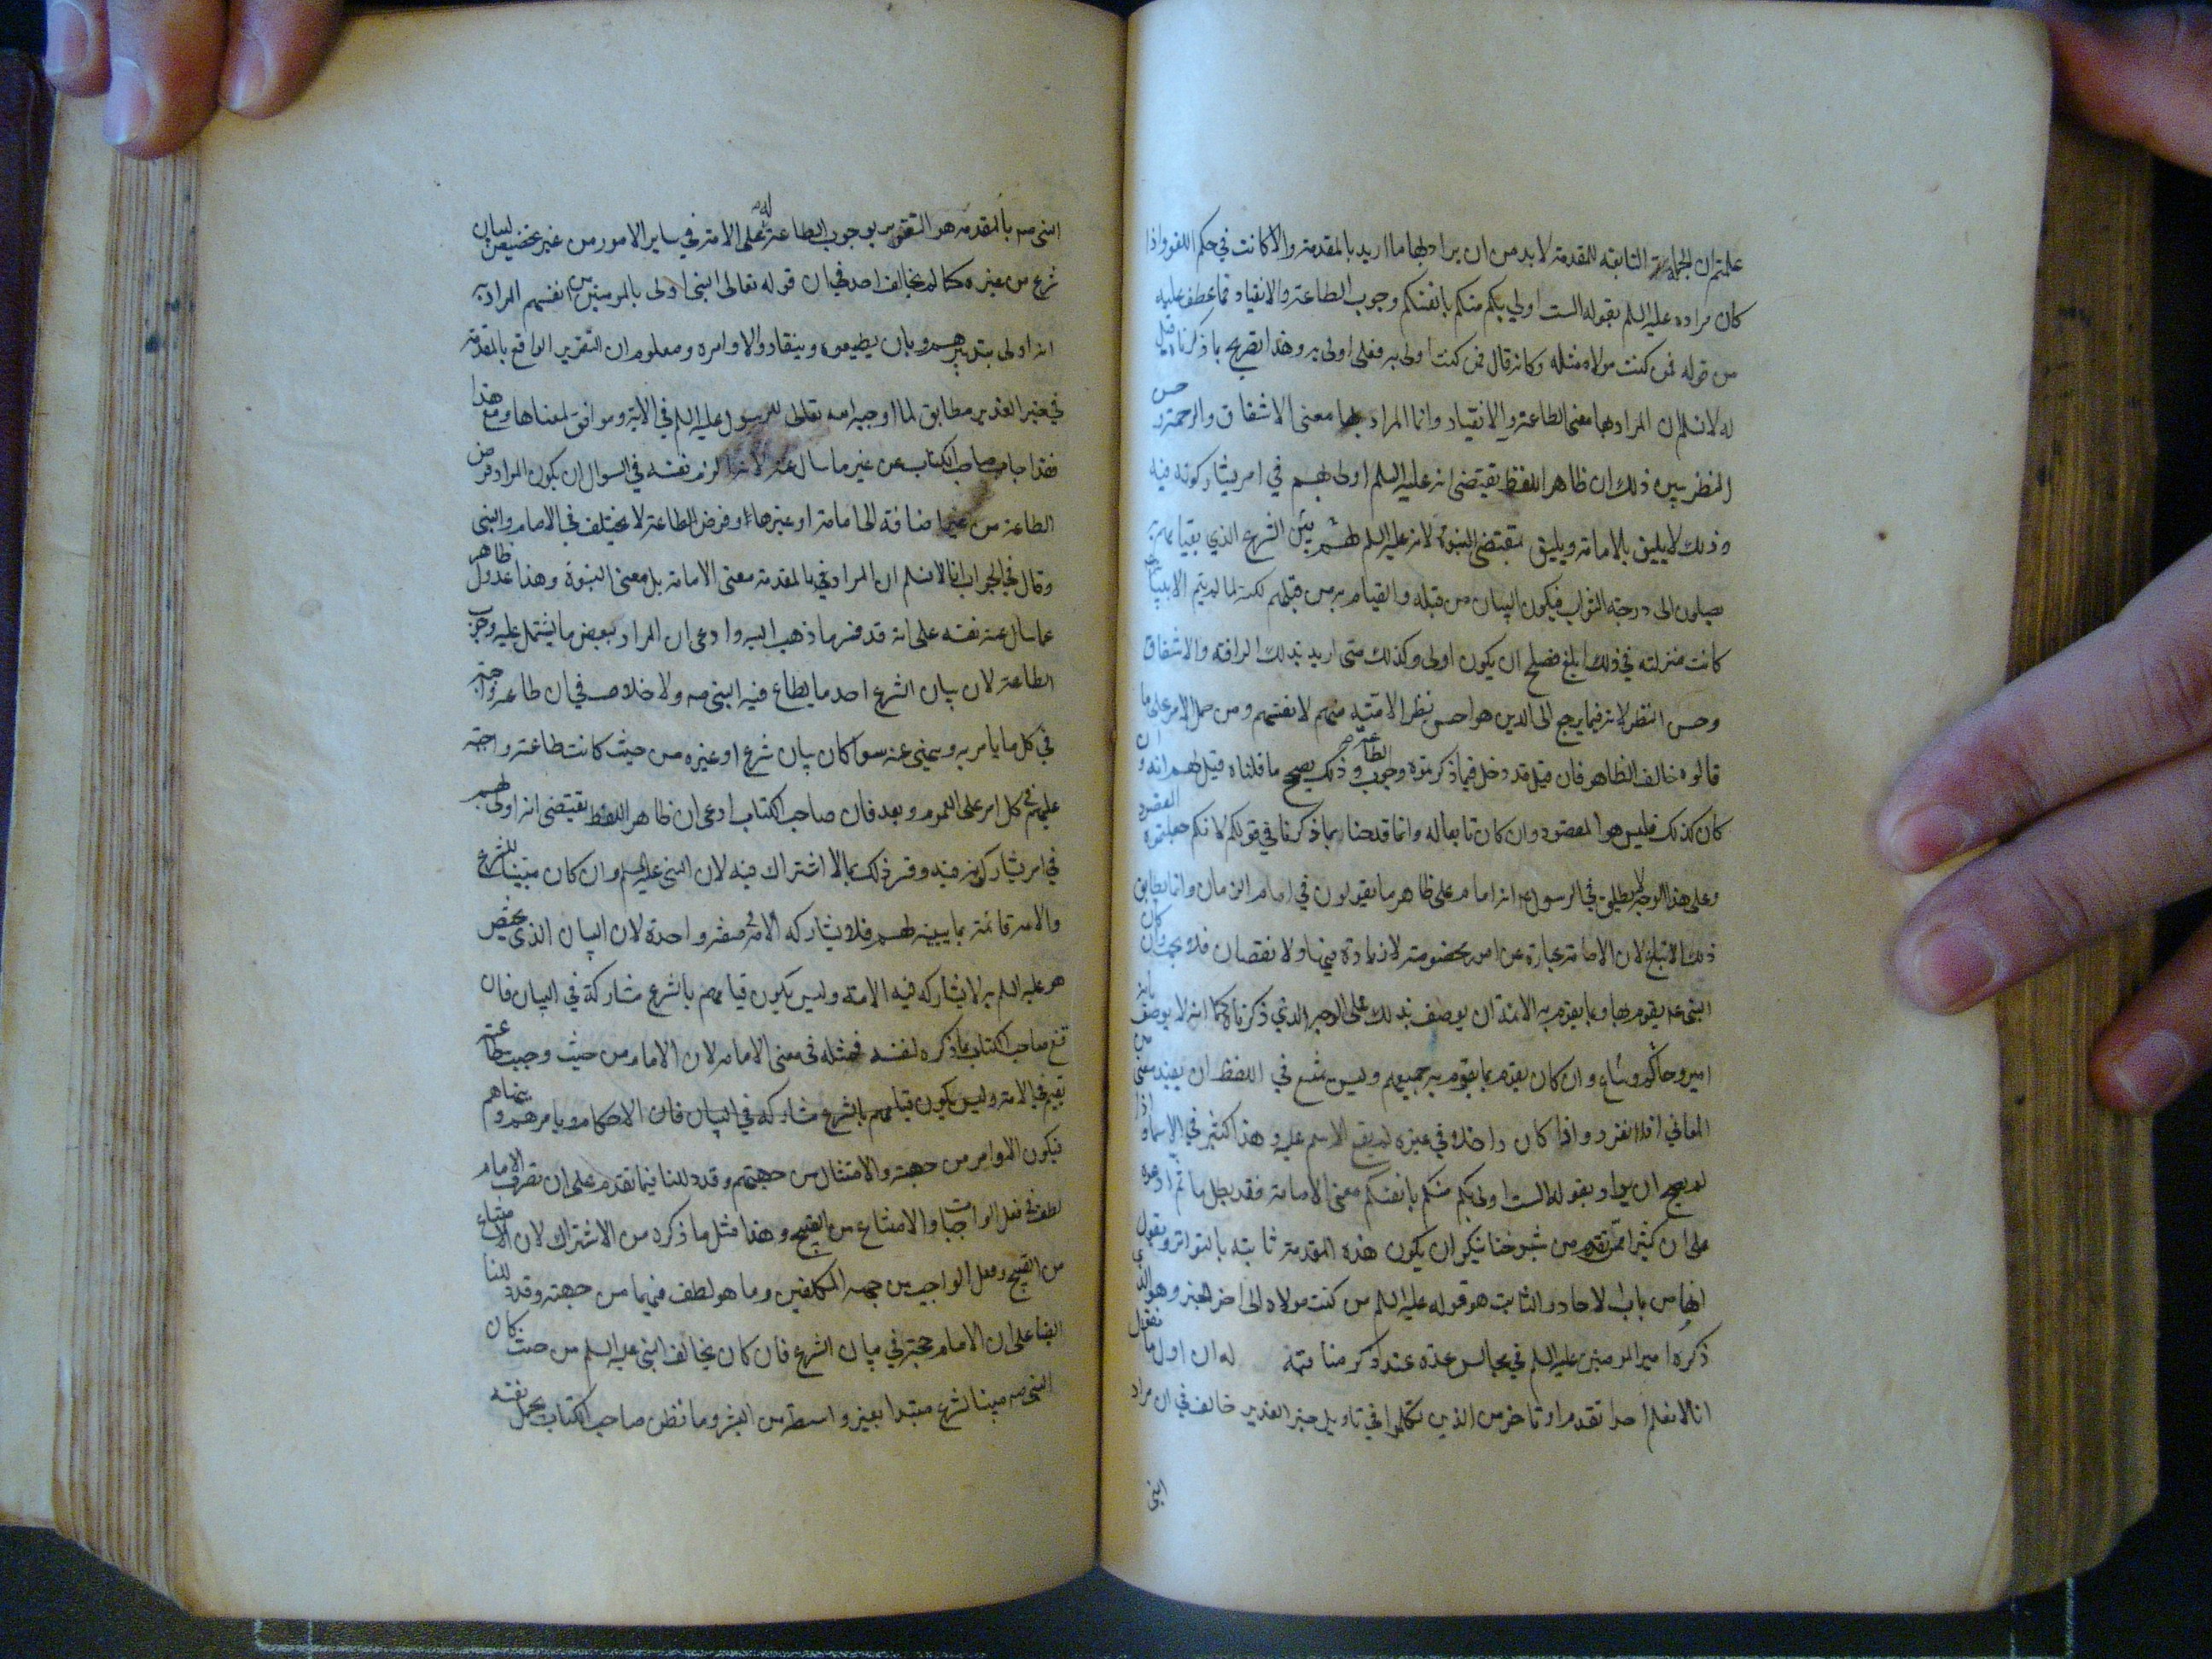 علمتم ان الجملة الثابته للمقدمة لابد من ان يراد بها ما اريد بالمقدمة والا كانت في حكم اللغو واذا
كان مراده عليه السلم بقوله الست اولي بكم منكم بانفسكم وجوب الطاعة والانقياد فما عطف عليه
من قوله فمن كنت مولاه مثله وكانه قال فمن كنت اولى به فعلى اولى به وهذا تصريح بما ذكرناه قيل
له لا نسلم ان المراد بها معنى الطاعة والانقياد وانما المراد بها معنى الاشفاق والرحمة و حسن
النظر يبين ذلك ان ظاهر اللفظ يقتضى انه عليه السلم اولى بهم في امر يشاركونه فيه
وذلك لا يليق بالامامة ويليق بمقتضى النبوة لانه عليه السلم لهم يبين الشرع الذي بقيامهم به
يصلون الى درجة الثواب فيكون البيان من قبله والقيام به من قبلهم لكنه لما لم يتم الا ببيانه
كانت منزلته في ذلك ابلغ فصلح ان يكون اولى وكذلك متى اريد بذلك الرافة والاشفاق
وحسن النظر لانه فيما يرجع الى الدين هو احسن نظرا لامته منهم لانفسهم ومن حمل الامر على ما
قالوه خالف الظاهر فان قيل قد دخل فيما ذكرتموه وجوب الطاعة و ذلك يصحح ما قلناه قيل لهم انه و ان
كان كذلك فليس هو المقصود وان كان تابعا له وانما قدحنا بما ذكرنا في قولكم لانكم جعلتموه المقصود
وعلى هذا الوجه لا يطلق في الرسول انه امام على ظاهر ما يقولون في امام الزمان وانما يطلق
ذلك لان الامامة عبارة عن امور مخصوصة لا زيادة فيها ولا نقصان فلا يجب و ان كان
النبى يقوم بها وبما يقوم به الائمة ان يوصف بذلك على الوجه الذي ذكرناه كما انه لا يوصف بانه
امير وحاكم وساع وان كان يقوم بما يقوم به جميعهم وليس يمتنع في اللفظ ان يفيد معنى من
المعاني اذا انفرد واذا كان داخلا في غيره لم يقع الاسم عليه وهذا كثير في الاسماء و اذا
لم يصح ان يراد بقوله الست اولى بكم منكم بانفسكم معنى الامامة فقد بطل ما ادعوه
على ان كثيرا ممن تقدم من شيوخنا ينكر ان يكون هذه المقدمة ثابتة بالتواتر ويقول
انها من باب الاحاد والثابت هو قوله عليه السلم من كنت مولاه الى اخر الخبر وهو الذي
ذكره امير المومنين عليه السلم في مجالس عدة عند ذكر مناقبه له ان اول ما نقول
انا لا نعلم احدا تقدم او تاخر من الذين تكلموا في تاويل خبر الغدير خالف في ان مراد
النبي
النبى صه بالمقدمة هو التقرير بوجوب الطاعة له على الامة في ساير الامور من غير تخصيص لبيان
شرع من غيره كما لم يخالف احد في ان قوله تعالى النبى اولى بالمومنين من انفسهم المراد به
انه اولى بتدبيرهم وبان يطيعوه وينقادوا لاوامره ومعلوم ان التقرير الواقع بالمقدمة
في خبر الغدير مطابق لما اوجبه الله تعالى للرسول عليه السلم في الاية وموافق لمعناها ومع هذا
فقد اجاب صاحب الكتاب عن غير ما سال عنه لانه الزم نفسه في السوال ان يكون المراد فرض
الطاعة من غير اضافة الى امامة او غيرها او فرض الطاعة لا يختلف في الامام والنبى
وقال في الجواب انا لا نسلم ان المراد في المقدمة معنى الامامة بل معنى النبوة وهذا عدول ظاهر
عما سال عنه نفسه على انه قد فسر ما ذهب اليه وادعى ان المراد ببعض ما يشتمل عليه وجوب
الطاعة لان بيان الشرع احد ما يطاع فيه النبى صه ولا خلاف في ان طاعته واجبة
في كل ما يامر به وينهى عنه سوا كان بيان شرع او غيره من حيث كانت طاعته واجبة
عليهم في كل امر على العموم وبعد فان صاحب الكتاب ادعى ان ظاهر اللفظ يقتضى انه اولى بهم
في امر يشاركونه فيه وفسر ذلك بما لا اشتراك فيه لان النبى عليه السلم وان كان مبينا للشرع
والامة قائمة بما يبينه لهم فلا يشاركه الا في صفة واحدة لان البيان الذى يختص
هو عليه السلم به لا يشاركه فيه الامة وليس يكون قيامهم بالشرع مشاركة في البيان فان
قنع صاحب الكتاب بما ذكره لنفسه فمثله في معنى الامامه لان الامام من حيث وجبت طاعته
يقيم في الامة وليس يكون قيامهم بالشرع مشاركه في البيان فان الاحكام ويامرهم وينهاهم
فيكون الاوامر من جهته والامتثال من جهتهم وقد دللنا فيما تقدم على ان تصرف الامام
لطف في فعل الواجبات والامتناع من القبيح وهذا مثل ما ذكره من الاشتراك لان الامتناع
من القبيح وفعل الواجب من جهه المكلفين وما هو لطف فيهما من جهته وقد دللنا
ايضا على ان الامام حجة في بيان الشرع فان كان يخالف النبى عليه السلم من حيث كان
النبى صه مبينا لشرع مبتدا بغير واسطة من البشر وما نظن صاحب الكتاب يحمل نفسه